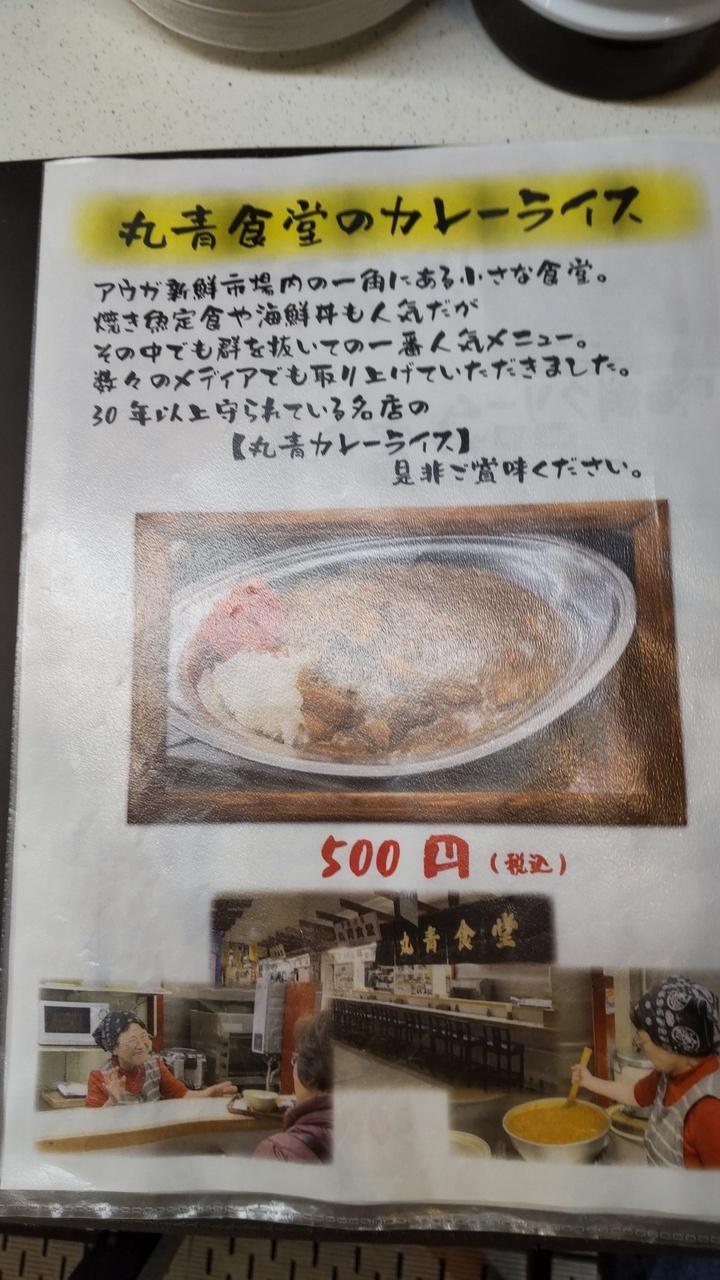 丸青食堂のカレーライス
アウガ新鮮市場内の一角にある小さな食堂。
焼き魚定食や海鮮丼も人気だが
その中でも群を抜いての一番人気メニュー。
数々のメディアでも取り上げていただきました。
30年以上守られている名店の
【丸青カレーライス】
是非ご賞味ください。
500円（税込）
丸青食堂
丸青食堂